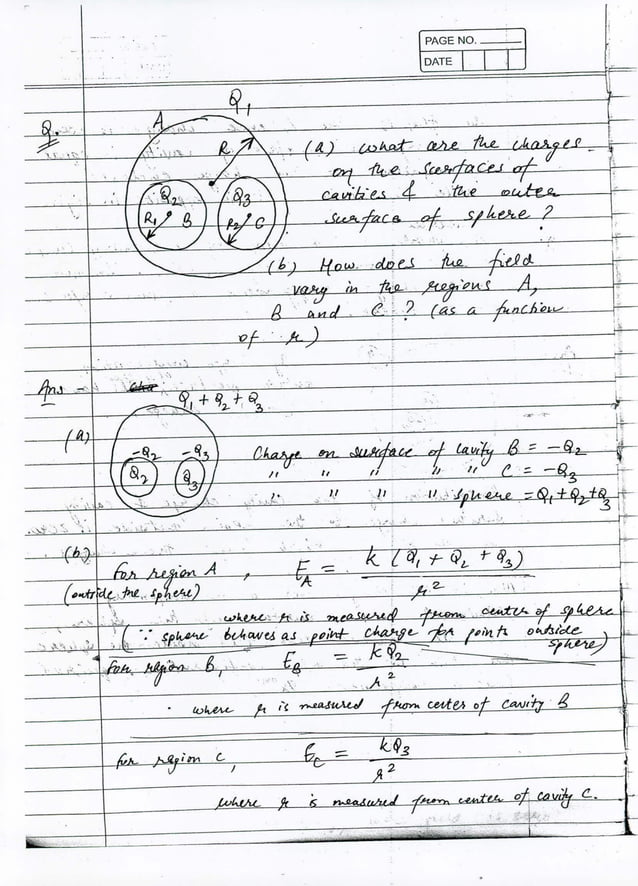 PAGE NO.
DATE
Q.
Q1
A
R
Q2
Q3
R1
B
R2
C
(a) what are the charges
on the surfaces of
cavities & the outer
surface of sphere?
(b) How does the field
vary in the regions A,
B and C? (as a function
of r)
Ans -
Q1 + Q2 + Q3
(a)
-Q2 -Q3
Q2 Q3
Charge on surface of cavity B = -Q2
" " " " " C = -Q3
" " " " sphere = Q1+Q2+Q3
(b)
For region A, E_A = k (Q1 + Q2 + Q3) / r²
(outside the sphere)
where r is measured from center of sphere
(∵ sphere behaves as point charge for points outside
sphere)
For region B, E_B = kQ2 / r²
where r is measured from center of cavity B
for region C, E_C = kQ3 / r²
where r is measured from center of cavity C.